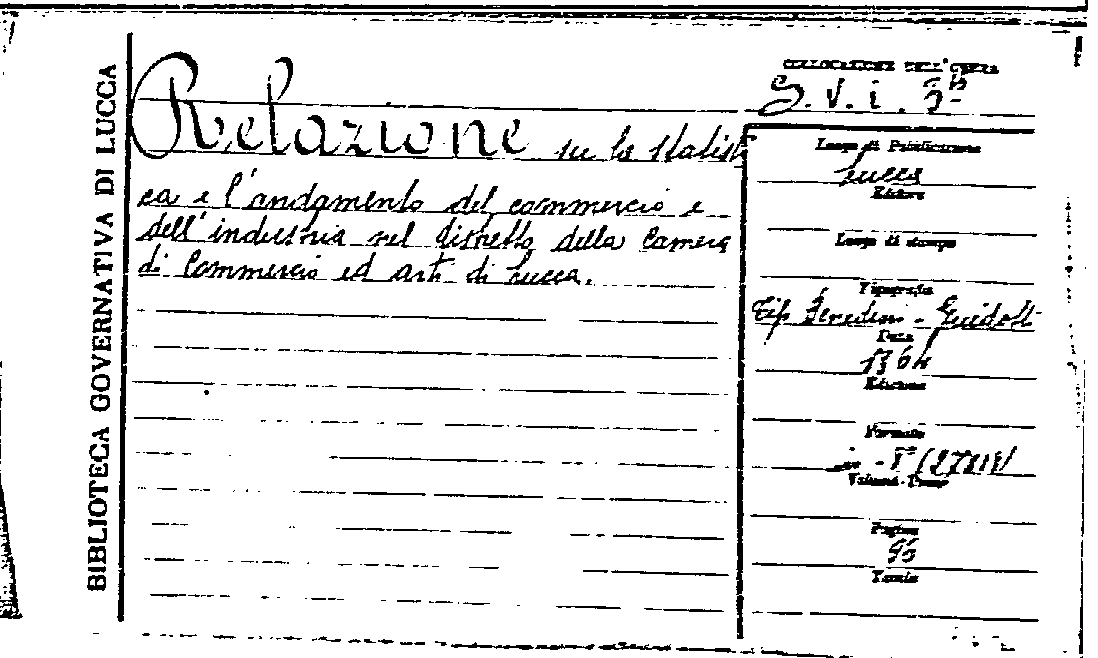 BIBLIOTECA GOVERNATIVA DI LUCCA
Relazione su la statist
ca e l'andamento del commercio e
dell'industria nel distretto della Camera
di Commercio ed arti di Lucca.
COLLOCAZIONE DELL'OPERA
S. V. i.
Luogo di Pubblicazione
Lucca
Editore
Luogo di stampa
Tipografia
Tip. Guidotti
Data
Edizione
Formato
Volumi - Tomo
Pagine
96
Tavole